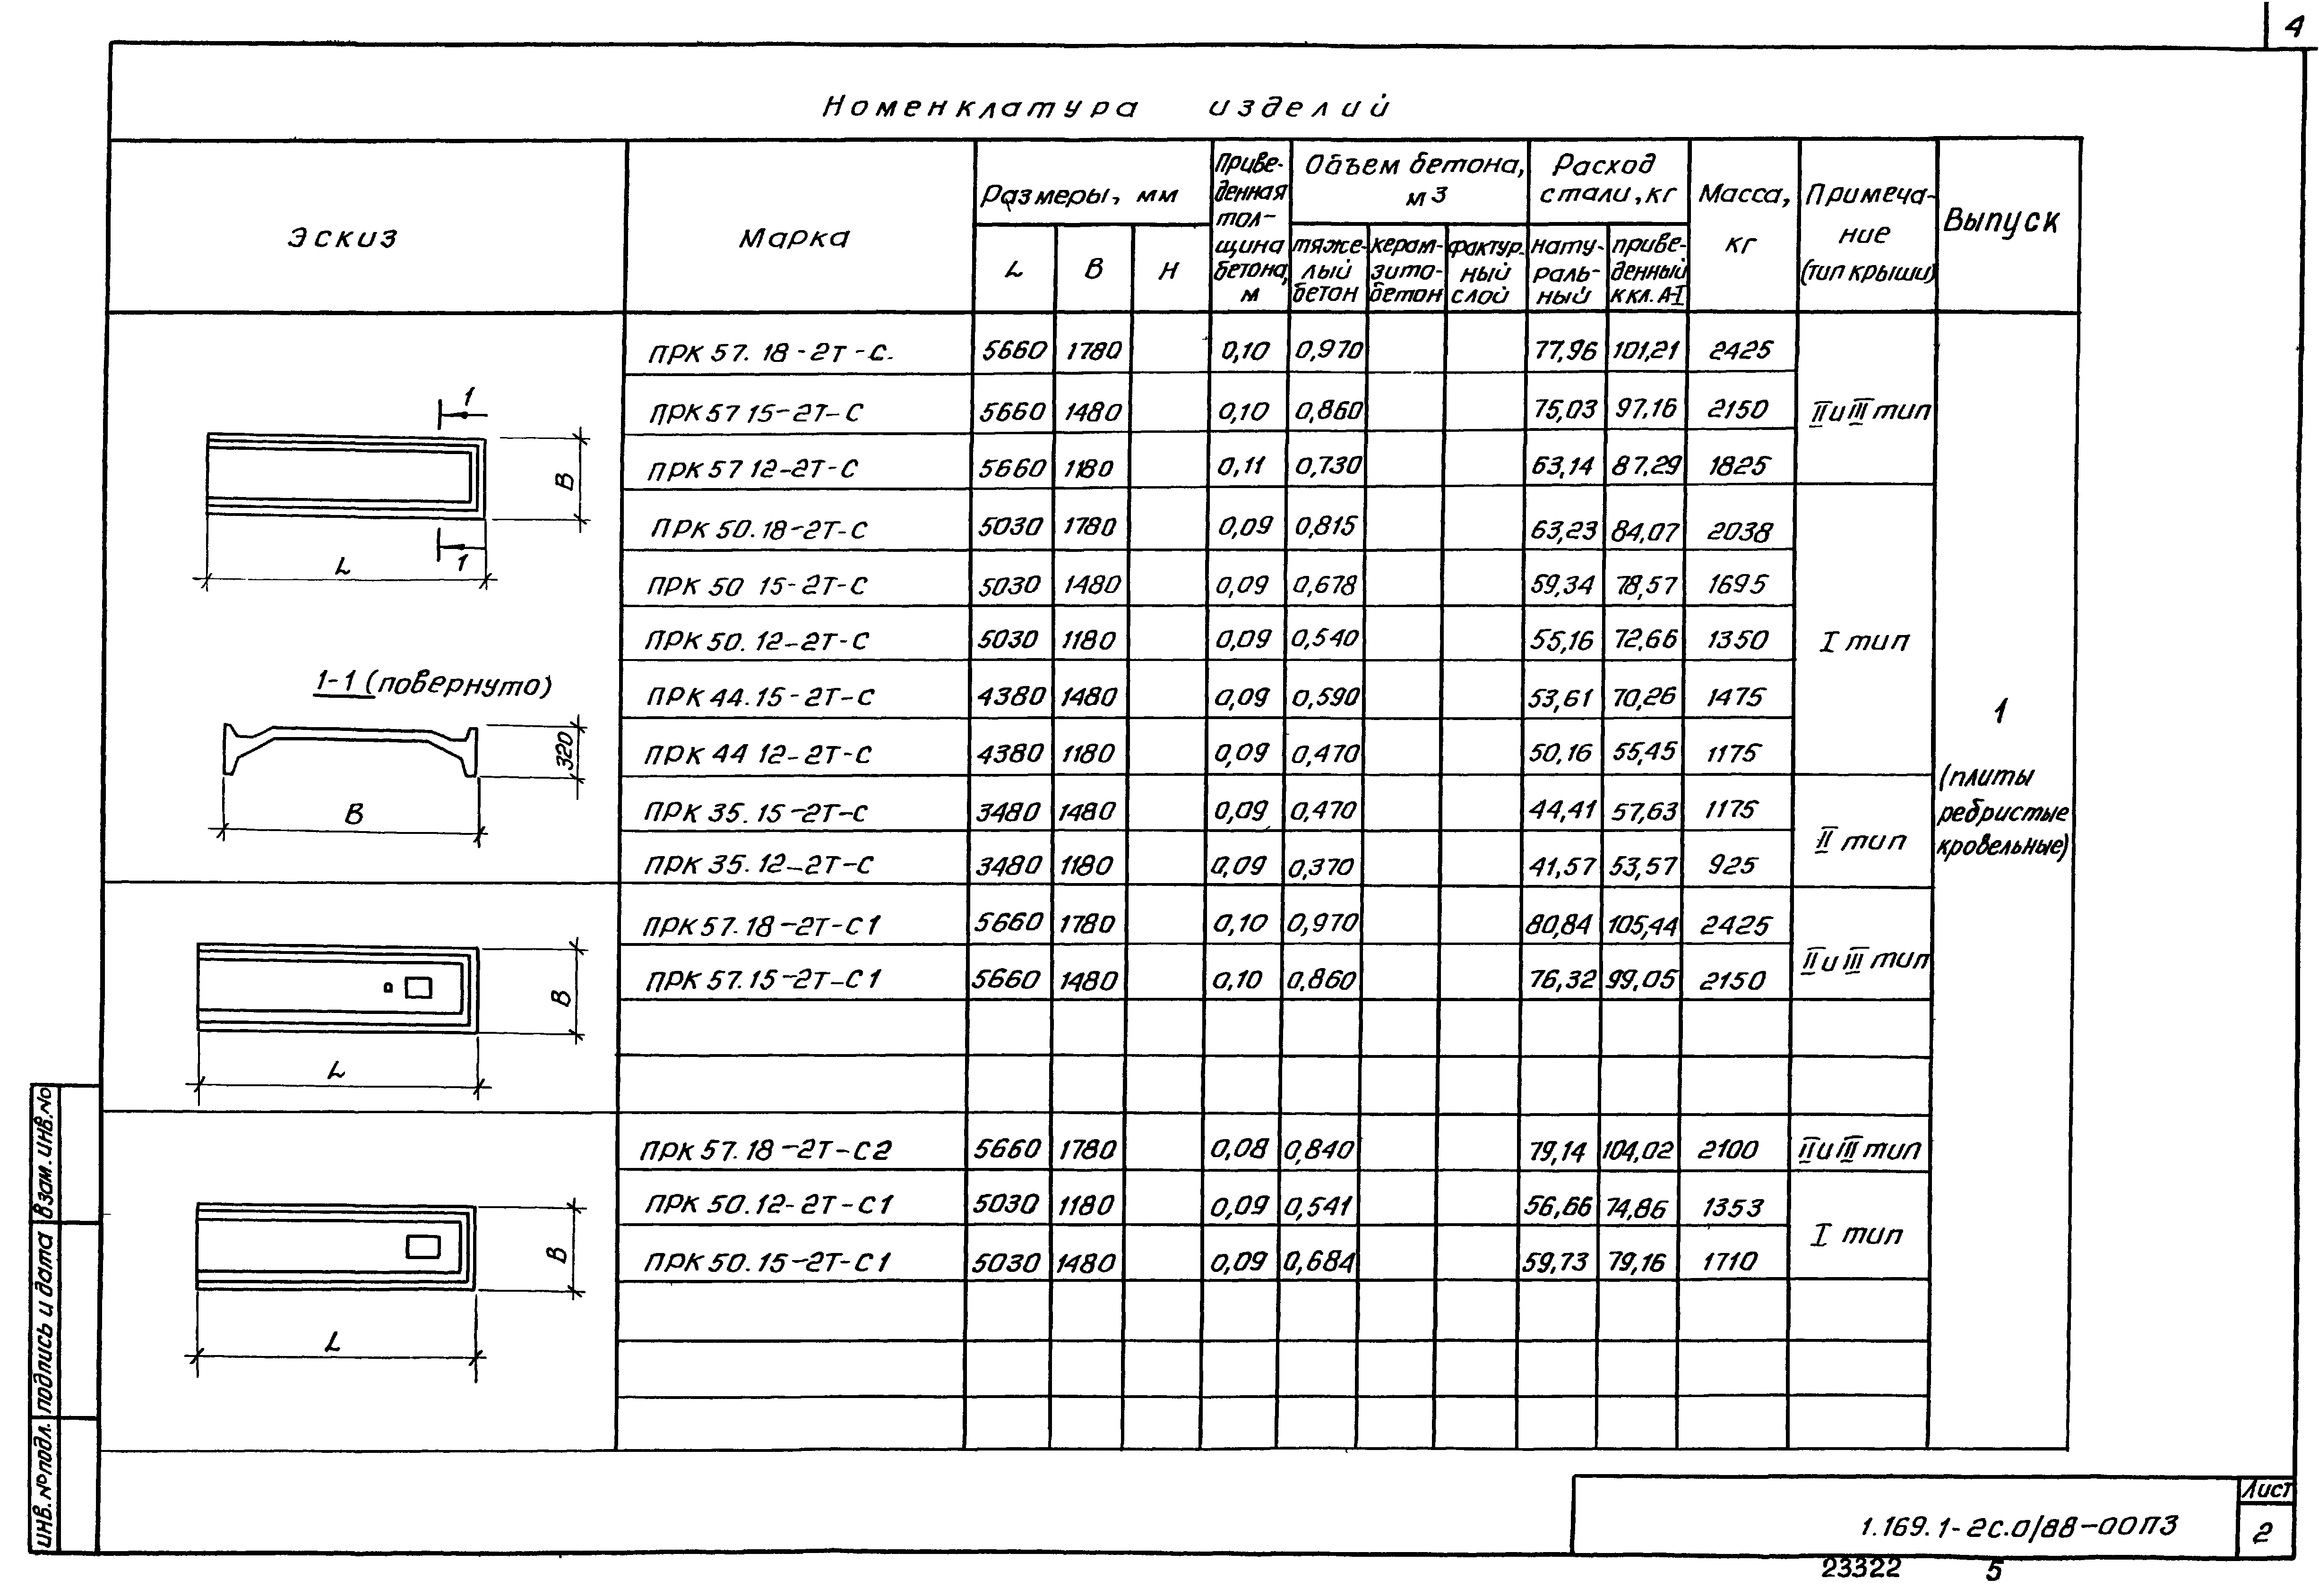 4
Номенклатура изделий
Эскиз
Марка
Размеры, мм
L B H
Приве-
денная
тол-
щина
бетона,
м
Объем бетона,
м3
тяже-
лый
бетон
керам-
зито-
бетон
фактур-
ный
слой
Расход
стали, кг
нату-
раль-
ный
приве-
денный
к кл. А-I
Масса,
кг
Примеча-
ние
(тип крыши)
Выпуск
ПРК 57.18-2Т-С. 5660 1780 0,10 0,970 77,96 101,21 2425
ПРК 57 15-2Т-С 5660 1480 0,10 0,860 75,03 97,16 2150 II и III тип
ПРК 57 12-2Т-С 5660 1180 0,11 0,730 63,14 87,29 1825
ПРК 50.18-2Т-С 5030 1780 0,09 0,815 63,23 84,07 2038
ПРК 50 15-2Т-С 5030 1480 0,09 0,678 59,34 78,57 1695
ПРК 50.12-2Т-С 5030 1180 0,09 0,540 55,16 72,66 1350 I тип
ПРК 44.15-2Т-С 4380 1480 0,09 0,590 53,61 70,26 1475
ПРК 44 12-2Т-С 4380 1180 0,09 0,470 50,16 55,45 1175
ПРК 35.15-2Т-С 3480 1480 0,09 0,470 44,41 57,63 1175
II тип
ПРК 35.12-2Т-С 3480 1180 0,09 0,370 41,57 53,57 925
ПРК 57.18-2Т-С1 5660 1780 0,10 0,970 80,84 105,44 2425
II и III тип
ПРК 57.15-2Т-С1 5660 1480 0,10 0,860 76,32 99,05 2150
ПРК 57.18-2Т-С2 5660 1780 0,08 0,840 79,14 104,02 2100 II и III тип
ПРК 50.12-2Т-С1 5030 1180 0,09 0,541 56,66 74,86 1353
I тип
ПРК 50.15-2Т-С1 5030 1480 0,09 0,684 59,73 79,16 1710
1
(плиты
ребристые
кровельные)
1
B
1
L
1-1 (повернуто)
320
B
B
L
B
L
Взам. инв. №
Подпись и дата
Инв. № подл.
1.169.1-2с.0/88-00ПЗ
Лист
2
23322 5